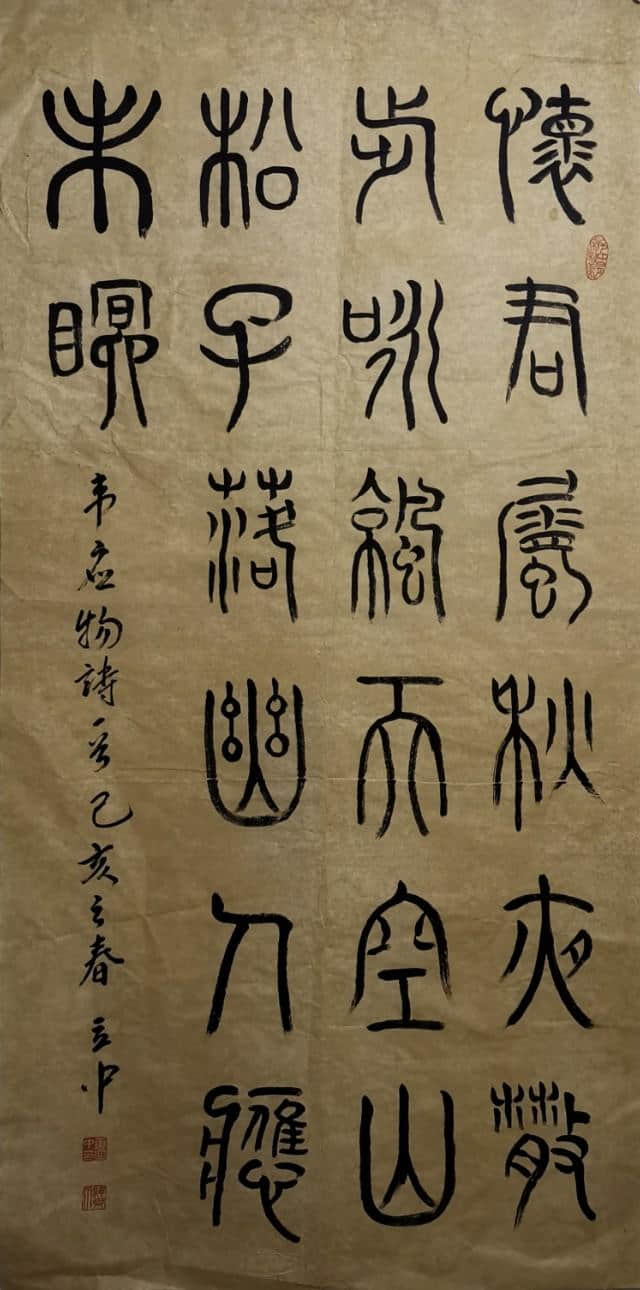 懷君屬秋夜散
步詠涼天空山
松子落幽人應
未眠
韋應物詩一首己亥之春 立中